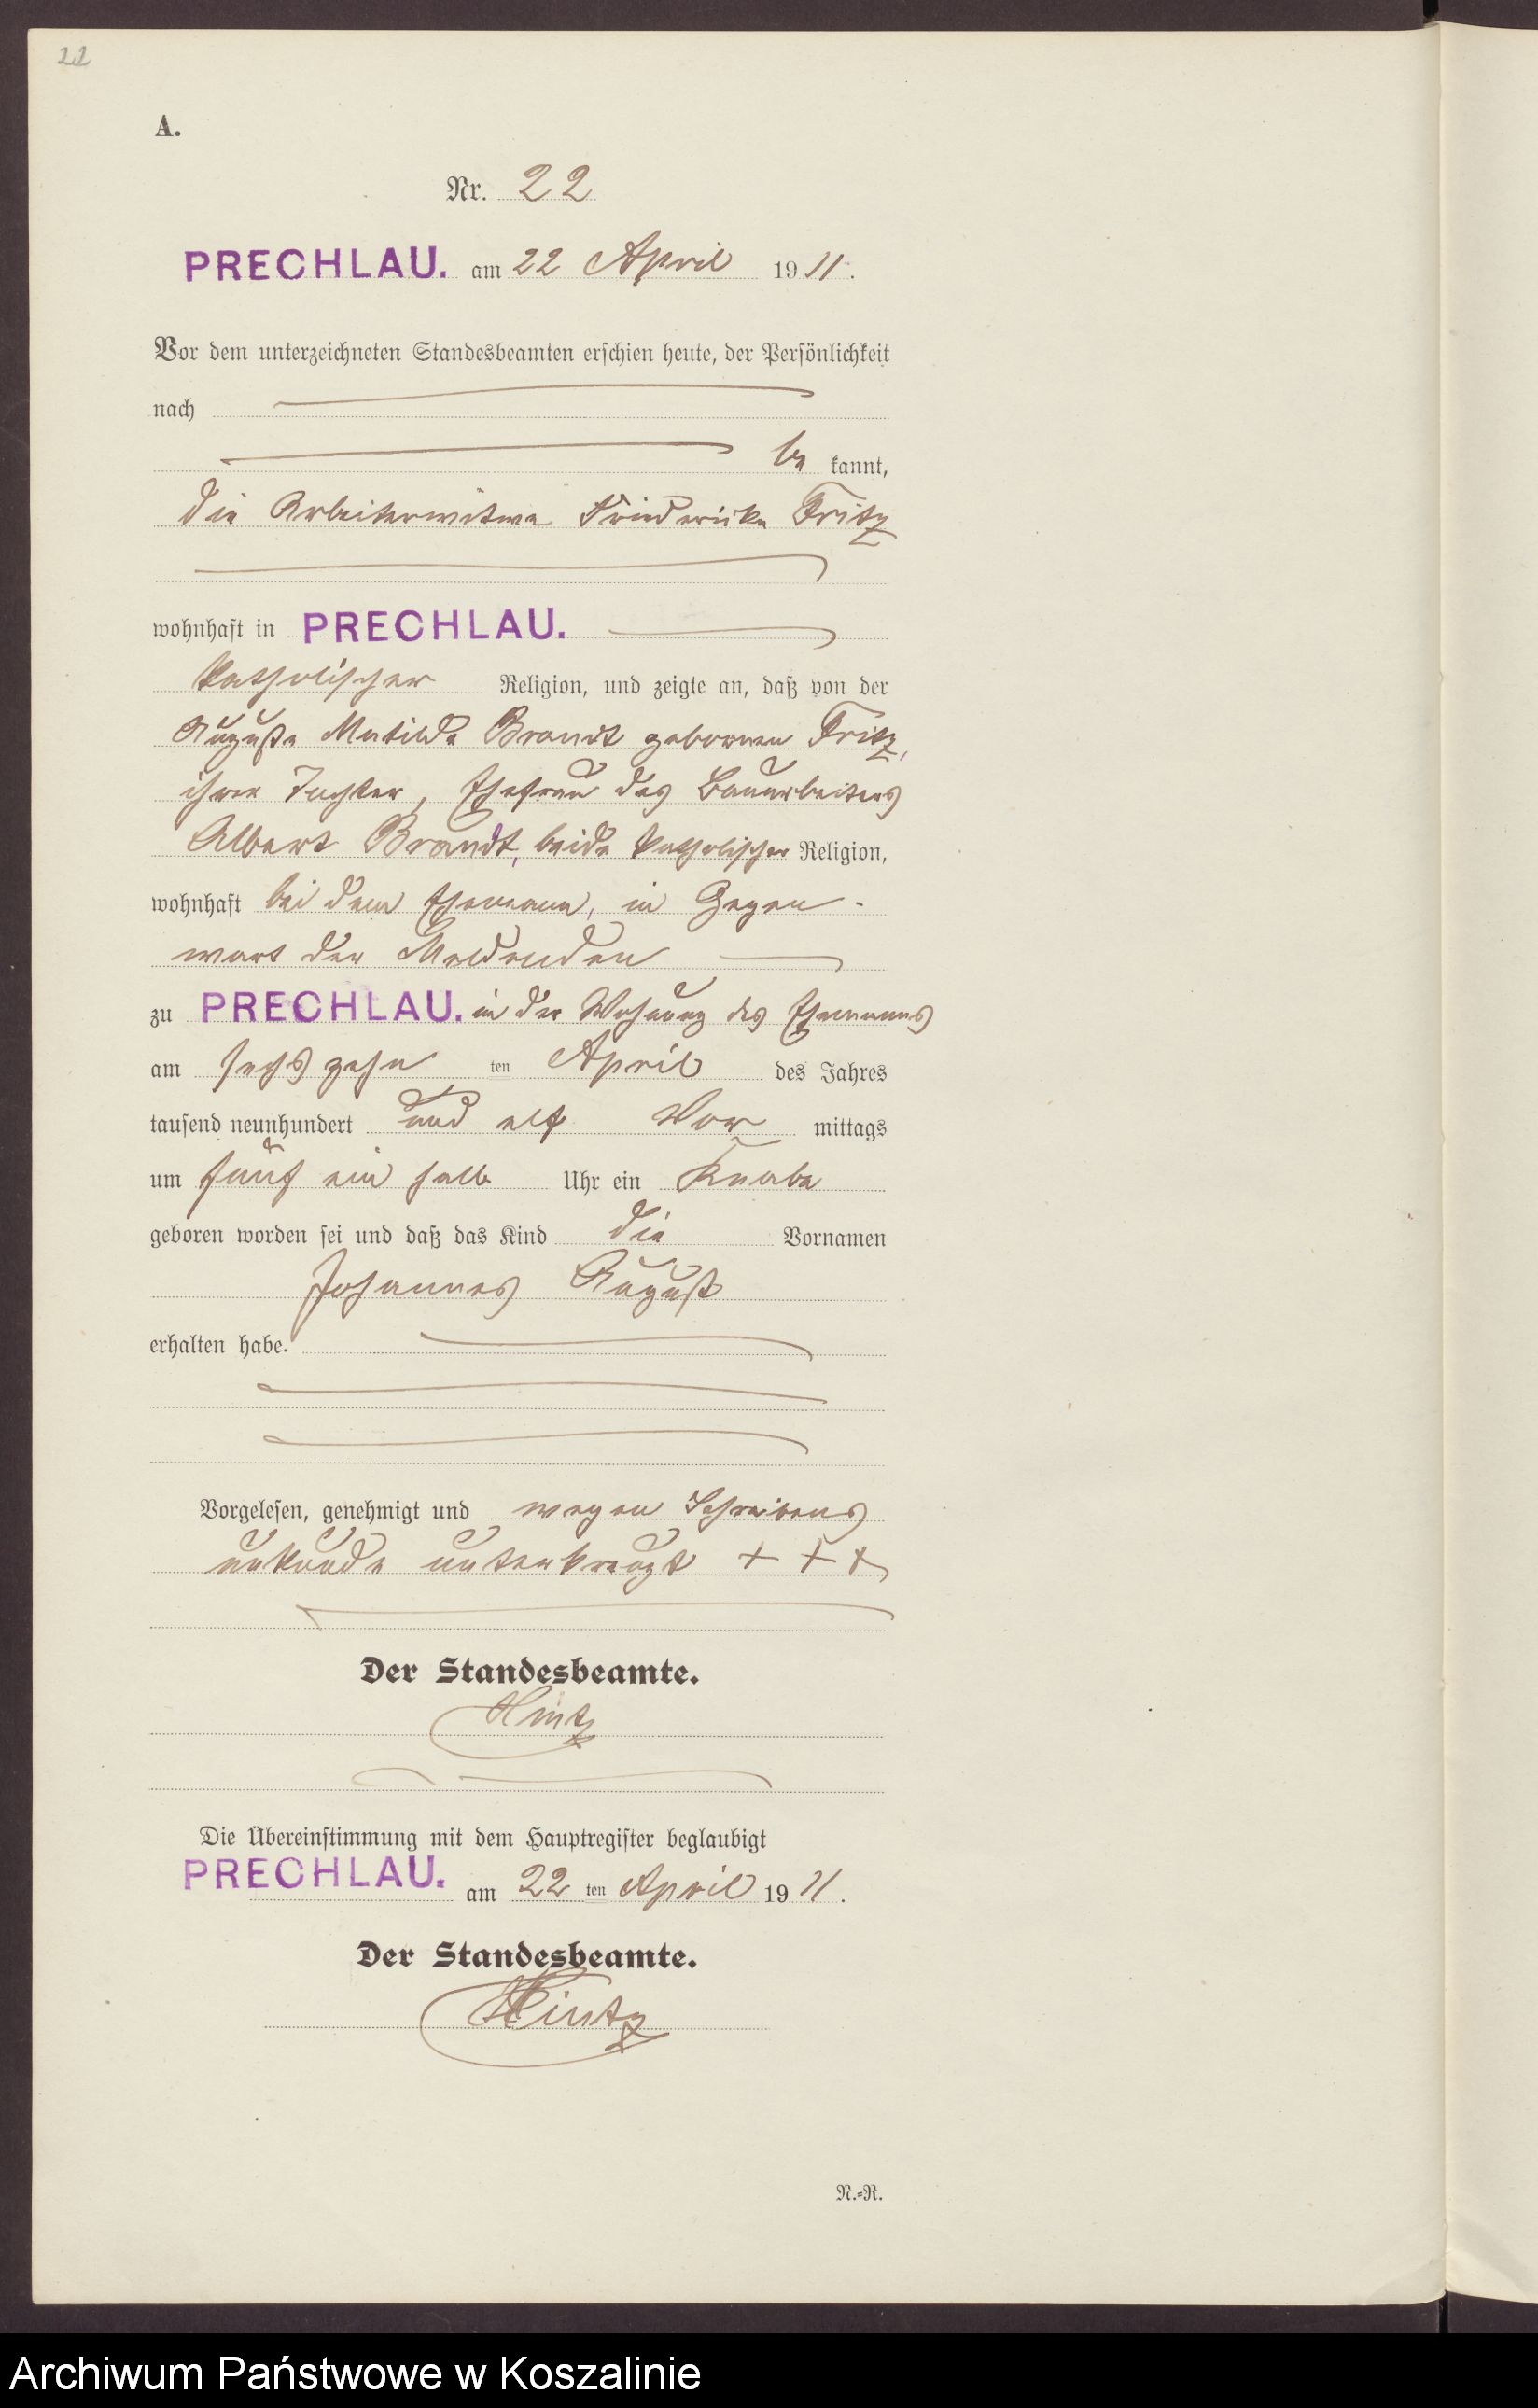 22
A.
Nr. 22
PRECHLAU. am 22 April 1911.
Vor dem unterzeichneten Standesbeamten erschien heute, der Persönlichkeit
nach
be kannt,
die Arbeiterwitwe Friedericke Fritz
wohnhaft in PRECHLAU.
katholischer Religion, und zeigte an, daß von der
Auguste Matilde Brandt geborenen Fritz,
ihrer Tochter, Ehefrau des Bauarbeiters
Albert Brandt, beide katholischer Religion,
wohnhaft bei dem Ehemann, in Gegen-
wart der Meldenden
zu PRECHLAU. in der Wohnung des Ehemanns
am sechszehn ten April des Jahres
tausend neunhundert und elf Vor mittags
um fünf ein halb Uhr ein Knabe
geboren worden sei und daß das Kind die Vornamen
Johannes August
erhalten habe.
Vorgelesen, genehmigt und wegen Schreibens
unkunde unterkreuzt + + +
Der Standesbeamte.
Hintz
Die Übereinstimmung mit dem Hauptregister beglaubigt
PRECHLAU. am 22 ten April 1911.
Der Standesbeamte.
Hintz
N.=R.
Archiwum Państwowe w Koszalinie